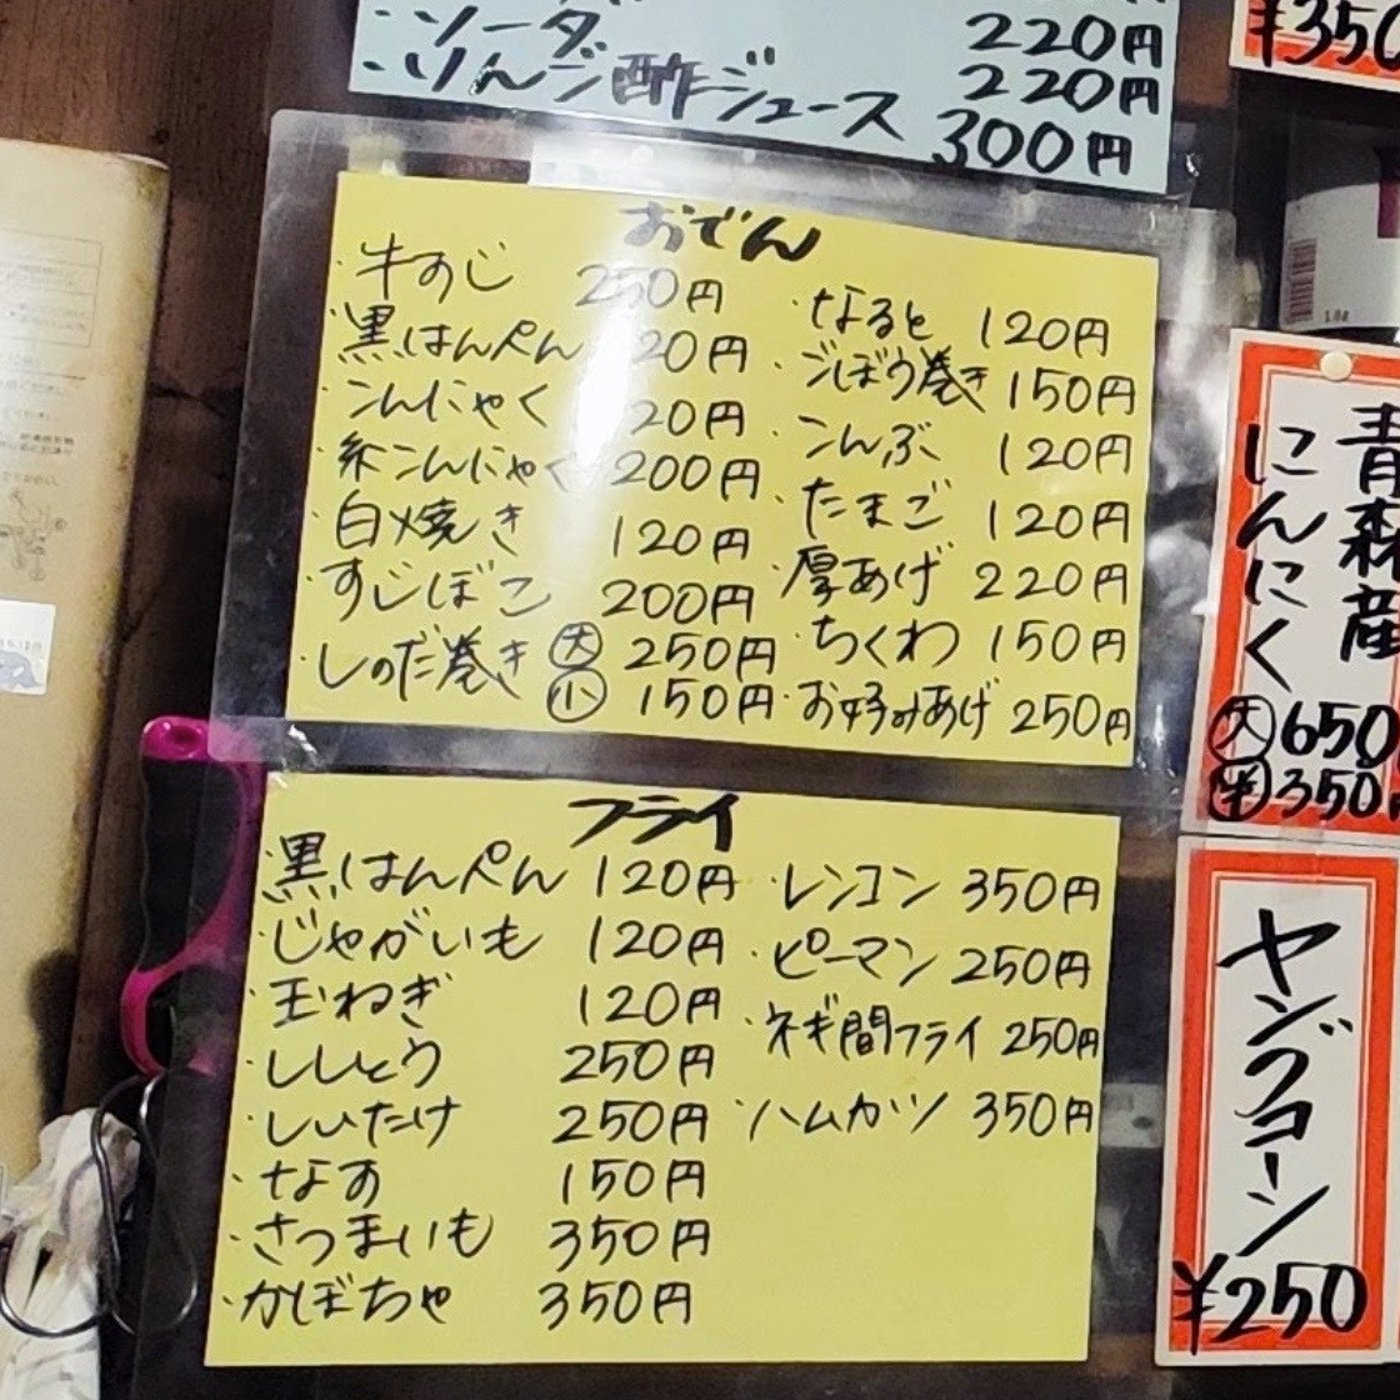 ・ソーダ 220円
・りんご酢ジュース 220円
300円
おでん
・牛すじ 250円
・黒はんぺん 120円
・こんにゃく 120円
・糸こんにゃく 200円
・白焼き 120円
・すじぼこ 200円
・しのだ巻き ㊅ 250円
㊉ 150円
・なると 120円
・ごぼう巻き 150円
・こんぶ 120円
・たまご 120円
・厚あげ 220円
・ちくわ 150円
・お好みあげ 250円
フライ
・黒はんぺん 120円
・じゃがいも 120円
・玉ねぎ 120円
・ししとう 250円
・しいたけ 250円
・なす 150円
・さつまいも 350円
・かぼちゃ 350円
・レンコン 350円
・ピーマン 250円
・ネギ間フライ 250円
・ハムカツ 350円
¥350
青森産
にんにく
大 650
半 350円
ヤングコーン
¥250